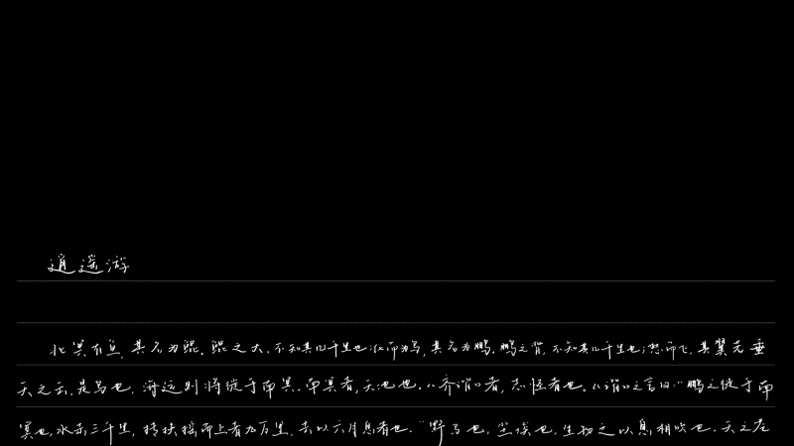 逍遥游
北冥有鱼,其名为鲲。鲲之大,不知其几千里也;化而为鸟,其名为鹏。鹏之背,不知其几千里也;怒而飞,其翼若垂
天之云。是鸟也,海运则将徙于南冥。南冥者,天池也。《齐谐》者,志怪者也。《谐》之言曰:“鹏之徙于南
冥也,水击三千里,抟扶摇而上者九万里,去以六月息者也。”野马也,尘埃也,生物之以息相吹也。天之苍